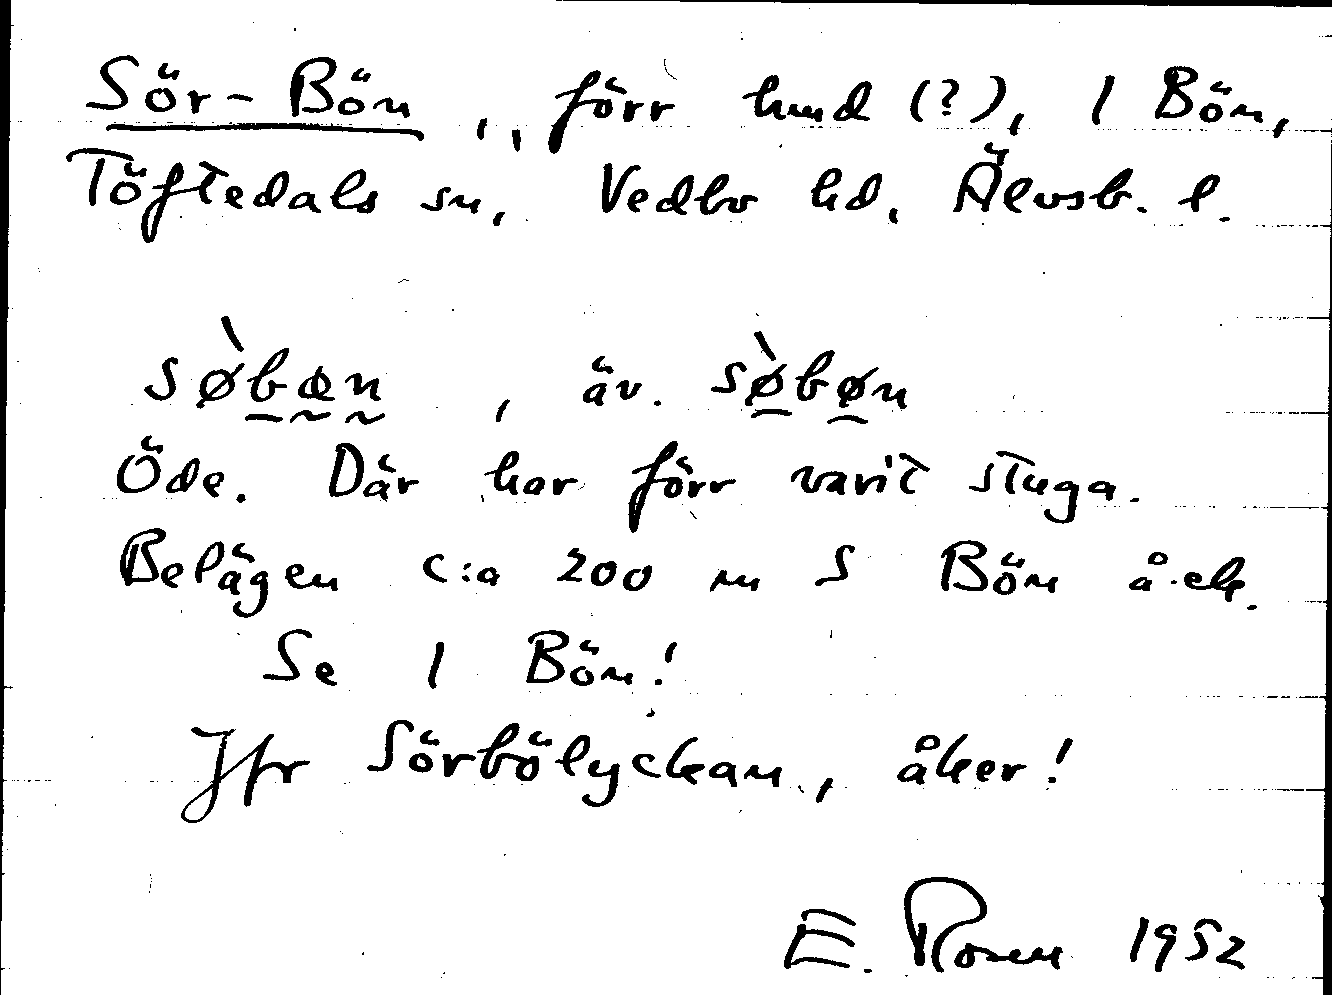 Sör-Bön, , förr hmd (?), 1 Bön,
Töftedals sn, Vedbo hd, Älvsb. l.
sø̀bœn , äv. sø̀bøn
Öde. Där har förr varit stuga.
Belägen c:a 200 m S Bön å.ek.
Se 1 Bön!
Jfr Sörbölyckan, åker!
E. Rosen 1952